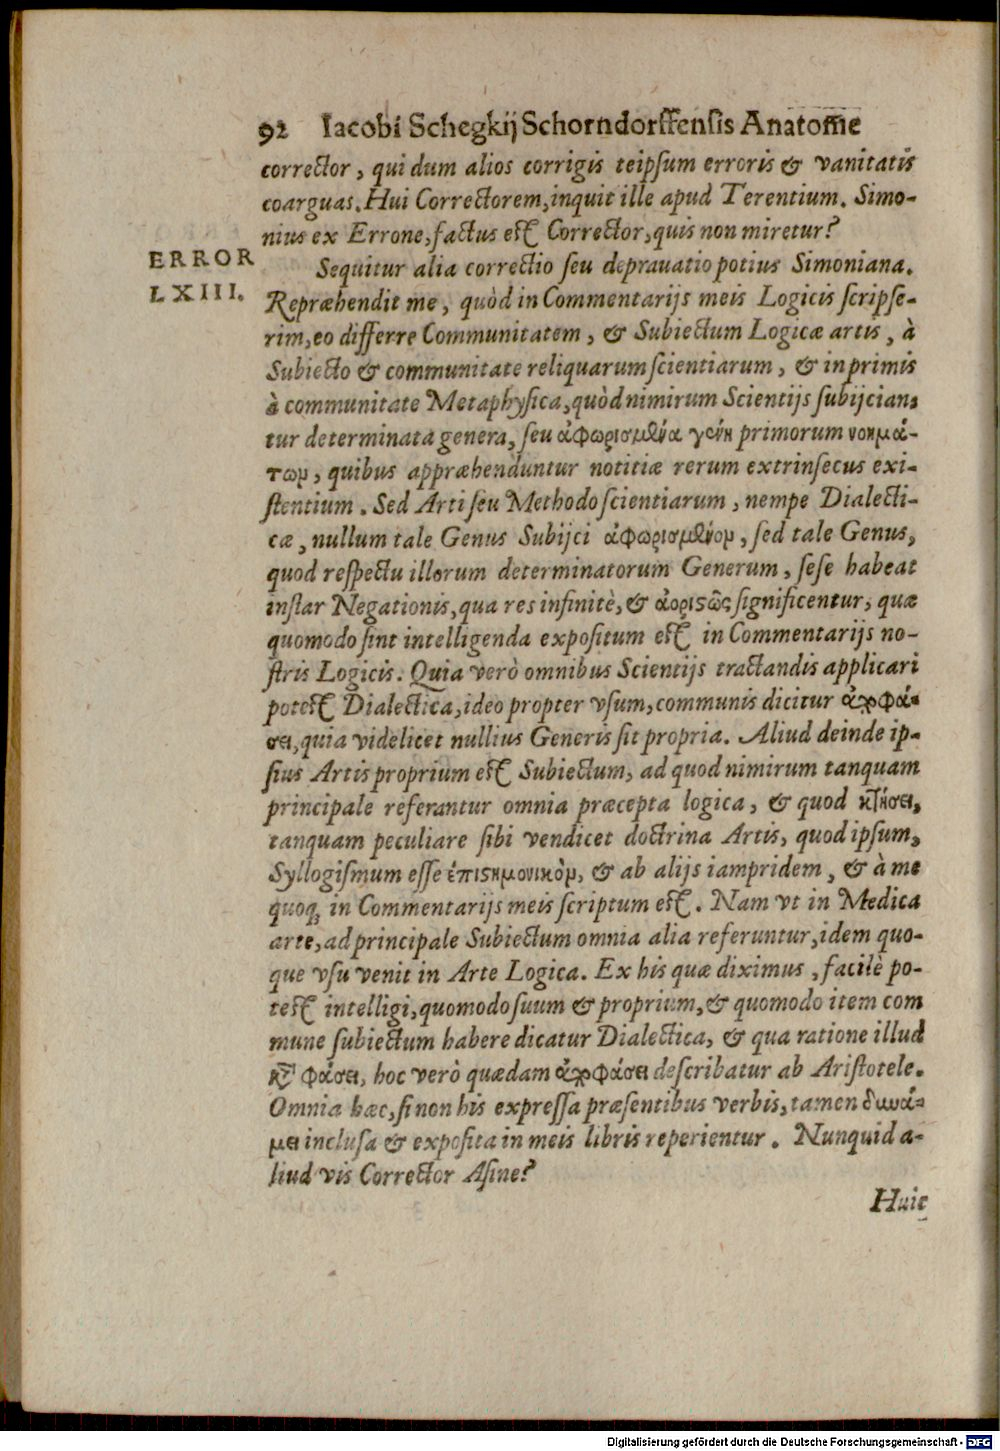 92 Iacobi Schegkij Schorndorffensis Anatome
corrector, qui dum alios corrigis teipsum erroris & vanitatis
coarguas. Hui Correctorem, inquit ille apud Terentium. Simo-
nius ex Errone, factus est Corrector, quis non miretur?
ERROR
LXIII.
Sequitur alia correctio seu deprauatio potius Simoniana.
Repræhendit me, quòd in Commentarijs meis Logicis scripse-
rim, eo differre Communitatem, & Subiectum Logicæ artis, à
Subiecto & communitate reliquarum scientiarum, & inprimis
à communitate Metaphysica, quòd nimirum Scientijs subijcian,
tur determinata genera, seu ἀφωρισμένα γένη primorum νοημά-
των, quibus appræhenduntur notitiæ rerum extrinsecus exi-
stentium. Sed Arti seu Methodo scientiarum, nempe Dialecti-
cæ, nullum tale Genus Subijci ἀφωρισμένον, sed tale Genus,
quod respectu illorum determinatorum Generum, sese habeat
instar Negationis, qua res infinitè, & ἀορίςως significentur, quæ
quomodo sint intelligenda expositum est in Commentarijs no-
stris Logicis. Quia verò omnibus Scientijs tractandis applicari
potest Dialectica, ideo propter vsum, communis dicitur ἀποφά-
σει, quia videlicet nullius Generis sit propria. Aliud deinde ip-
sius Artis proprium est Subiectum, ad quod nimirum tanquam
principale referantur omnia præcepta logica, & quod κτήσει,
tanquam peculiare sibi vendicet doctrina Artis, quod ipsum,
Syllogismum esse ἐπιςημονικὸν, & ab alijs iampridem, & à me
quoq; in Commentarijs meis scriptum est. Nam vt in Medica
arte, ad principale Subiectum omnia alia referuntur, idem quo-
que vsu venit in Arte Logica. Ex his quæ diximus, facilè po-
test intelligi, quomodo suum & proprium, & quomodo item com
mune subiectum habere dicatur Dialectica, & qua ratione illud
κỳ φάσει, hoc verò quædam ἀποφάσει describatur ab Aristotele.
Omnia hæc, si non his expressa præsentibus verbis, tamen δυνά-
μει inclusa & exposita in meis libris reperientur. Nunquid a-
liud vis Corrector Asine?
Huic
Digitalisierung gefördert durch die Deutsche Forschungsgemeinschaft - DFG